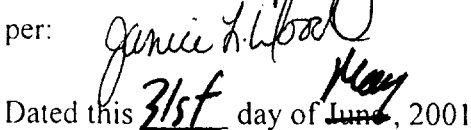 per: Janice L. Wood
May
Dated this 31st day of June, 2001